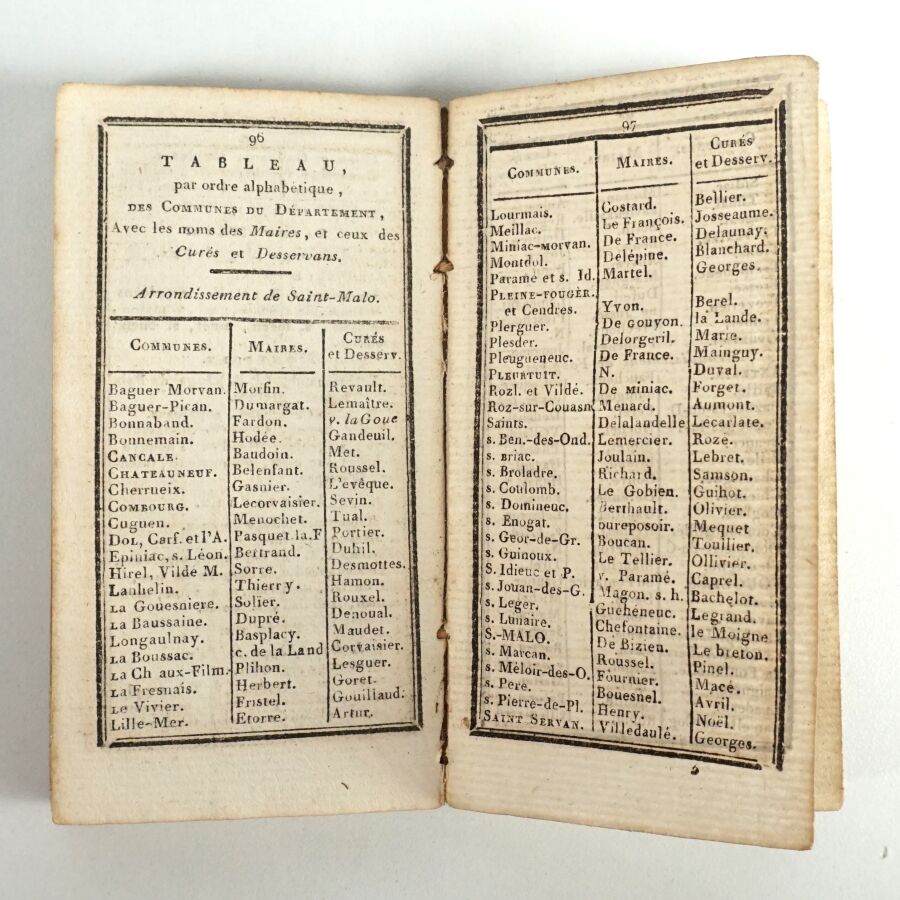 96
TABLEAU,
par ordre alphabetique,
DES COMMUNES DU DÉPARTEMENT,
Avec les noms des Maires, et ceux des
Curés et Desservans.
Arrondissement de Saint-Malo.
COMMUNES. MAIRES. CURÉS et DESSERV.
Baguer Morvan. Morfin. Revault.
Baguer-Pican. Dumargat. Lemaître.
Bonnaband. Fardon. v. la Goue
Bonnemain. Hodée. Gandeuil.
CANCALE. Baudoin. Met.
CHATEAUNEUF. Belenfant. Roussel.
Cherrueix. Gasnier. L'evêque.
COMBOURG. Lecorvaisier. Sevin.
Cuguen. Menochet. Tual.
DOL, Carf. et l'A. Pasquet.la.F Portier.
Epiniac, s. Léon. Bertrand. Duhil.
Hirel, Vilde M. Sorre. Desmottes.
Lanhelin. Thierry. Hamon.
LA Gouesniere. Solier. Rouxel.
LA Baussaine. Dupré. Denoual.
Longaulnay. Basplacy. Maudet.
LA Boussac. c. de la Land Corvaisier.
LA Ch aux-Film. Plihon. Lesguer.
LA Fresnais. Herbert. Goret.
LE Vivier. Fristel. Gouillaud.
Lille-Mer. Etorre. Artur.
97
COMMUNES. MAIRES. CURÉS et DESSERV.
Lourmais. Costard. Bellier.
Meillac. Le François. Josseaume.
Miniac-morvan. De France. Delaunay.
Montdol. Delépine. Blanchard.
Paramé et s. Id. Martel. Georges.
PLEINE-FOUGÈR.
et Cendres. Yvon. Berel.
Plerguer. De Gouyon. la Lande.
Plesder. Delorgeril. Marie.
Pleugueneuc. De France. Mainguy.
PLEURTUIT. N. Duval.
Rozl. et Vildé. De Miniac. Forget.
Roz-sur-Couasn. Menard. Aumont.
Saints. Delalandelle Lecarlate.
s. Ben.-des-Ond. Lemercier. Rozé.
s. BRIAC. Joulain. Lebret.
s. Broladre. Richard. Samson.
s. Coulomb. Le Gobien. Guihot.
s. Domineuc. Berthault. Olivier.
s. Enogat. oureposoir. Mequet
s. Geor-de-Gr. Boucan. Toullier.
s. Guinoux. Le Tellier. Ollivier.
S. Idieuc et P. v. Paramé. Caprel.
s. Jouan-des-G. Magon. s. h. Bachelot.
s. Leger. Guéhéneuc. Legrand.
s. Lunaire. Chefontaine. le Moigne
S.-MALO. De Bizien. Le breton.
s. Marcan. Roussel. Pinel.
s. Méloir-des-O. Fournier. Macé.
s. Pere. Bouesnel. Avril.
s. Pierre-de-Pl. Henry. Noël.
SAINT SERVAN. Villedaulé. Georges.